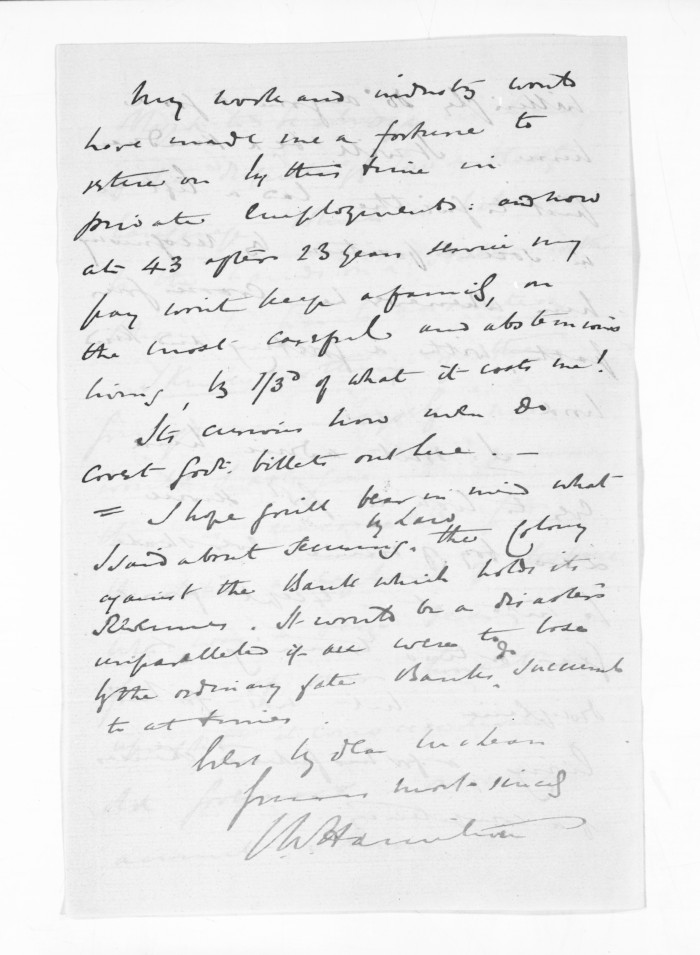 My work and industry would
have made me a fortune to
retire on by this time in
private employments: and now
at 43 after 23 years service my
pay won't keep a family, on
the most careful and abstemious
living, by 1/3d of what it costs me!
Its curious how men do
covet Govt. billets out here. —
= I hope you'll bear in mind what
I said about securing by Law the Colony
against the Bank which holds its
Revenues. It would be a disaster
unparalleled if all were to lose
by the ordinary fate Banks do succumb
to at times.
my dear McLean
Yours most sincly
Hamilton